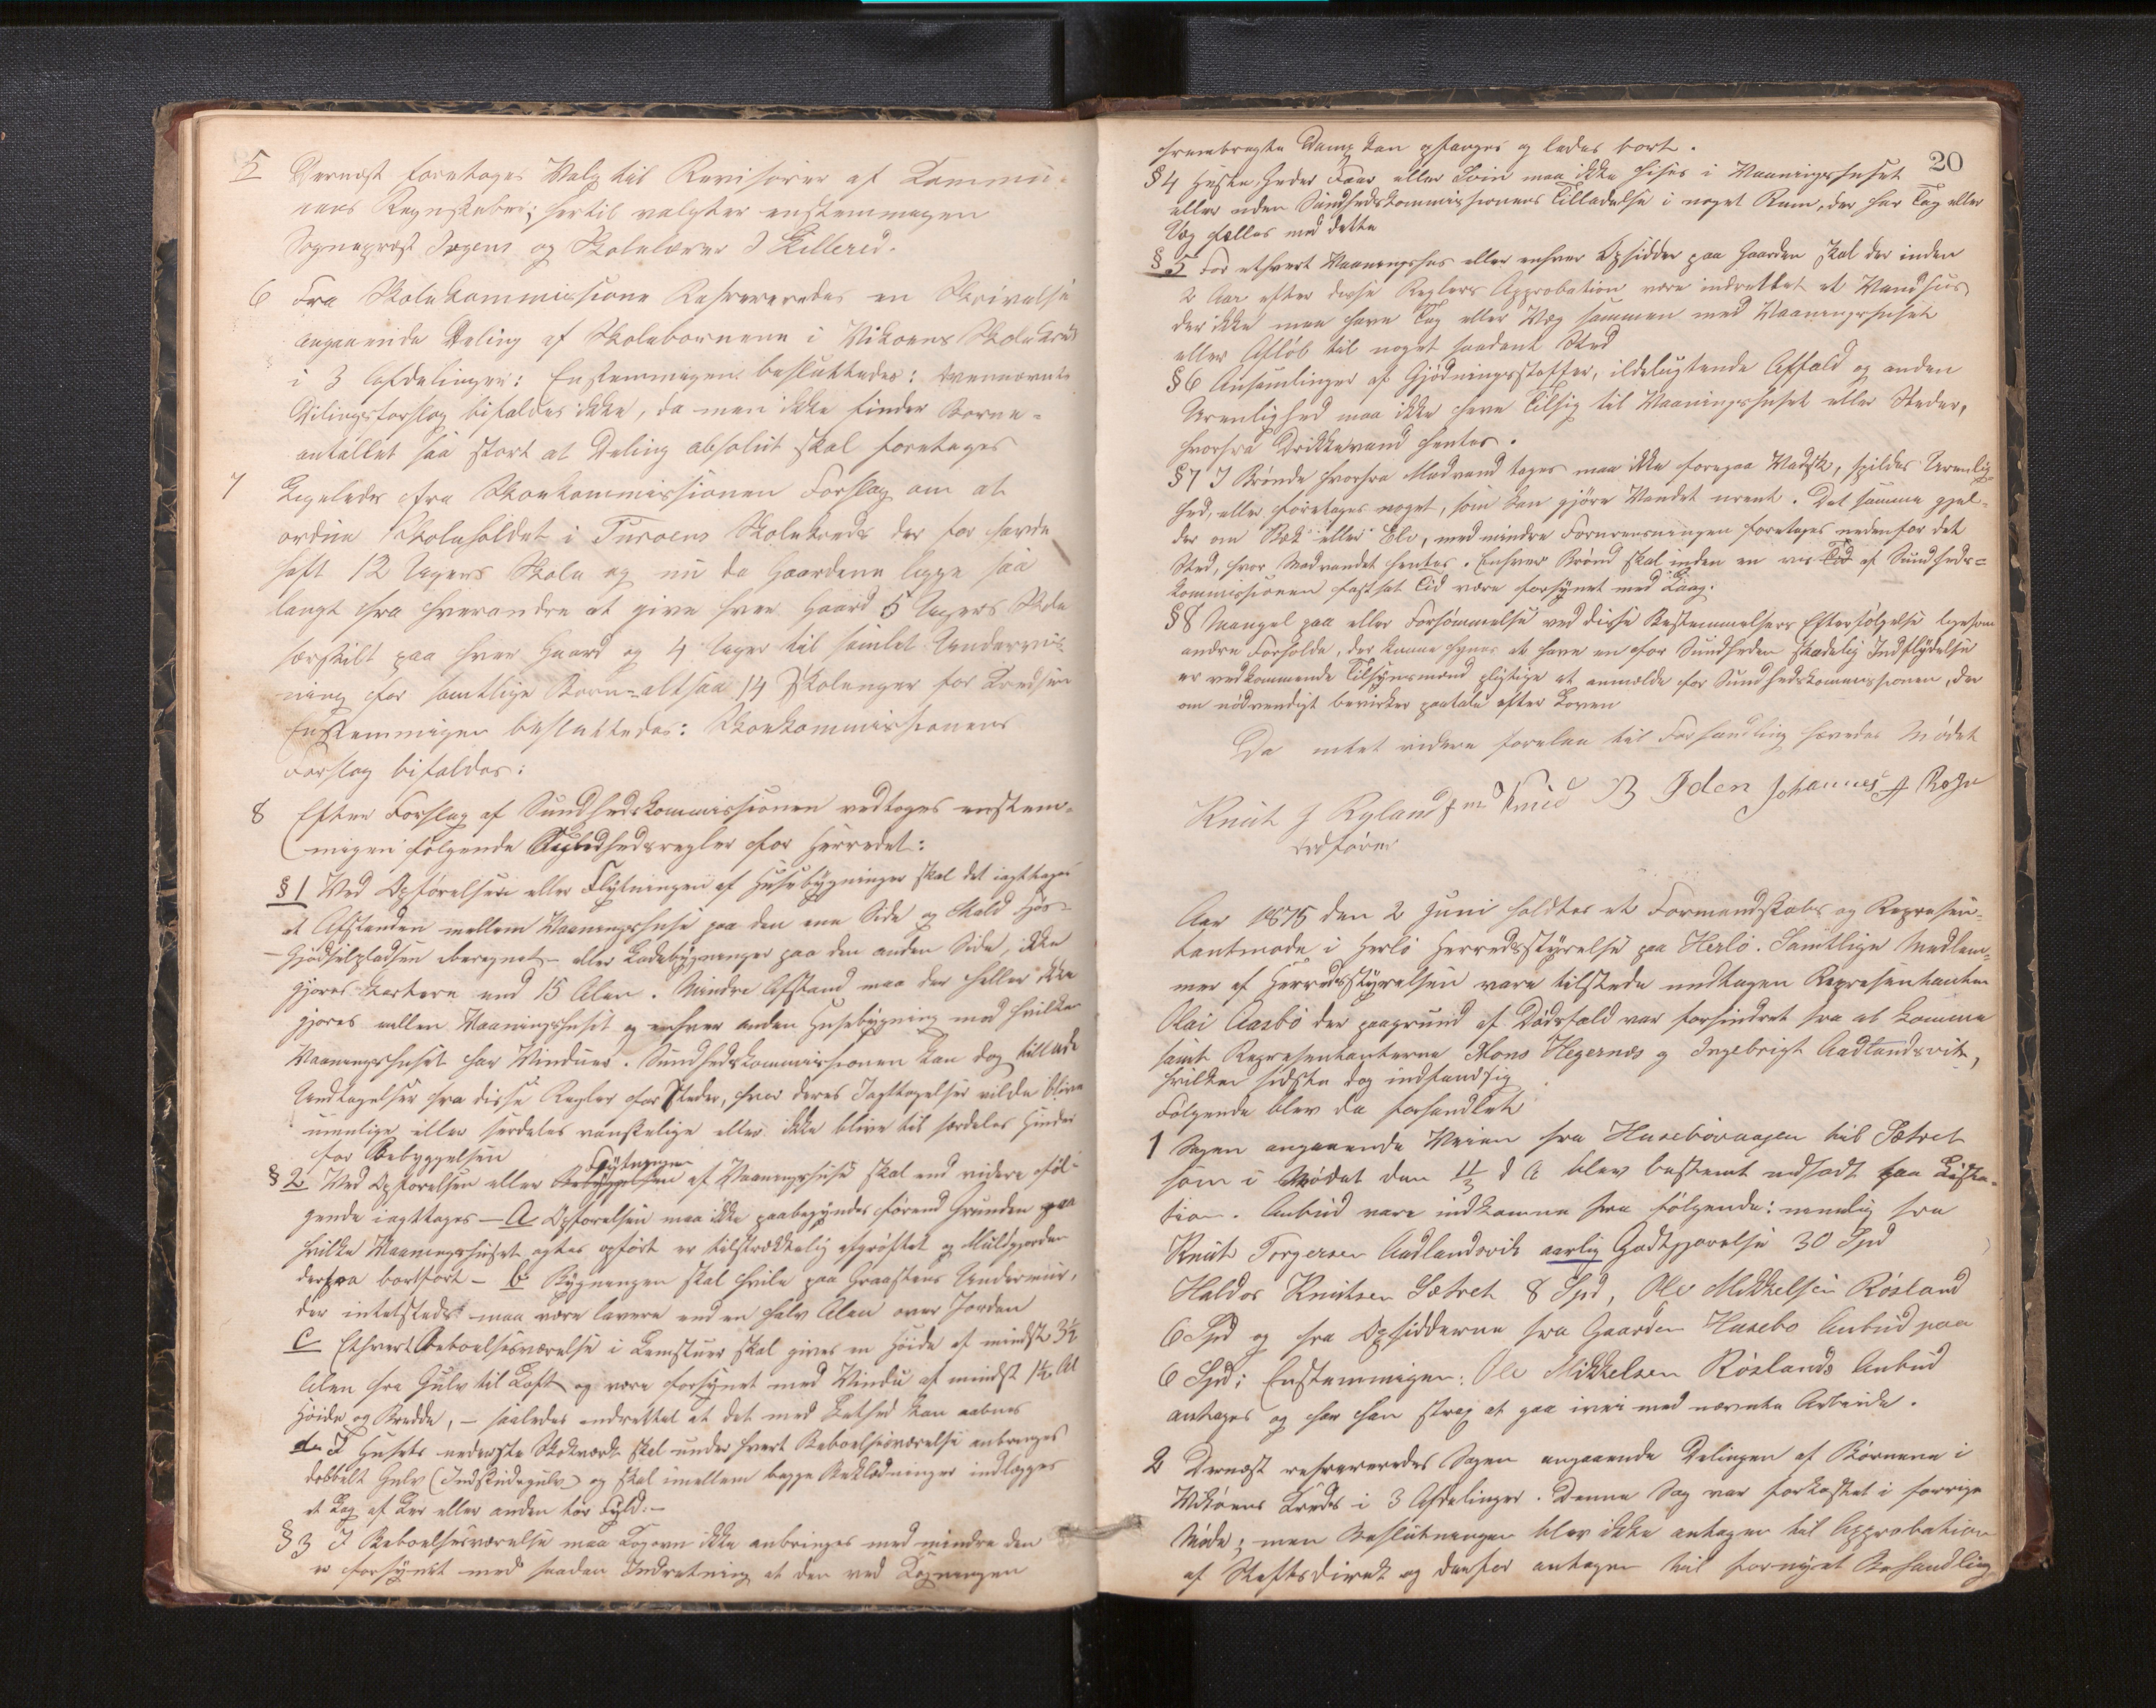 5 Dernæst foretoges Valg til Revisorer af Kommu-
nens Regnskaber; hertil valgtes enstemmigen
Sogneprest Irgens og Skolelærer J Killerud.
6 Fra Skolekommissione Refrereredes en Skrivelse
angaaende Deling af Skolebørnene i Vikøens Skolekreds
i 3 Afdelinger: Enstemmigen besluttedes: Ovennævnte
Delingsforslag bifaldes ikke, da man ikke finder Børne-
antallet saa stort at Deling absolut skal foretages
7 Ligeledes fra Skolekommissionen Forslag om at
ordne Skoleholdet i Turøens Skolekreds der før havde
haft 12 Ugers Skole og nu da Gaardene ligge saa
langt fra hverandre at give hver Gaard 5 Ugers Skole
særskilt paa hver Gaard og 4 Uger til samlet Undervis-
ning for samtlige Børn - altsaa 14 Skoleuger for Kredsen
Enstemmigen besluttedes: Skolekommissionens
Forslag bifaldes:
8 Efter Forslag af Sundhedskommissionen vedtoges enstem-
migen følgende Sundhedsregler for Herredet:
§ 1 Ved Opførelsen eller Flytningen af Husebygninger skal det iagttages
at Afstanden mellem Vaaningshuse paa den ene Side og Stald Fjøs-
- Gjødselpladsen beregnet - eller Ladebygninger paa den anden Side, ikke
gjøres kortere end 15 Alen. Mindre Afstand maa der heller ikke
gjøres mellem Vaaningshuset og enhver anden Husebygning mod hvilken
Vaaningshuset har Vinduer. Sundhedskommissionen kan dog tillade
Undtagelser fra disse Regler for Steder, hvor deres Iagttagelse vilde blive
umulige eller særdeles vanskelige eller ikke blive til særdeles Hinder
for Bebyggelsen
§ 2 Ved Opførelsen eller Bebyggelsen Flytningen af Vaaningshuse skal end videre føl-
gende iagttages - A Opførelsen maa ikke paabegyndes førend Grunden paa
hvilke Vaaningshuset agtes opført er tilstrækkelig afgrøftet og Muldjorden
derfra bortført - b Bygningen skal hvile paa Graastens Undermur,
der intetsteds maa være lavere end en halv Alen over Jorden
C Ethvert Beboelsesværelse i Lemstuer skal gives en Høide af mindst 3½
Alen fra Gulv til Loft og være forsynet med Vindu af mindst 1½ Al
Høide og Bredde, - saaledes indrettet at det med Lethed kan aabnes
d. I Husets nederste Stokværk skal under hvert Beboelsesværelse anbringes
dobbelt Gulv (Indskudsgulv) og skal imellem begge Beklædninger indlægges
et Lag af Ler eller anden tør Fyld.-
§ 3 I Beboelsesværelse maa Kogovn ikke anbringes med mindre den
er forsynet med saadan Indretning at den ved Kogningen
20
frembragte Damp kan opfanges og ledes bort.
§ 4 Heste, Geder Faar eller Svin maa ikke huses i Vaaningshuset
eller uden Sundhedskommissionens Tilladelse i noget Rum, der har Tag eller
Væg fælles med dette
§ 5 For ethvert Vaaningshus eller enhver Opsidder paa Gaarden skal der inden
2 Aar efter disse Reglers Approbation være indrettet et Vandhus
der ikke maa have Tag eller Væg sammen med Vaaningshuset
eller Afløb til noget saadant Sted
§ 6 Ansamlinger af Gjødningsstoffer, ildelugtende Affald og anden
Urenlighed maa ikke have Tilsig til Vaaningshuset eller Steder,
hvorfra Drikkevand hentes.
§ 7 I Brønde hvorfra Madvand tages maa ikke foregaa Vadsk, spildes Urenlig-
hed, eller foretages noget, som kan gjøre Vandet urent. Det samme gjæl-
der om Bæk eller Elv, med mindre Forurensningen foretages nedenfor det
Sted, hvor Madvandet hentes. Enhver Brønd skal inden en vis Tid af Sundheds-
kommissionen fastsat Tid være forsynet med Laag.
§ 8 Mangel paa eller Forsømmelse ved disse Bestemmelsers Efterfølgelse ligesom
andre Forholde, der kunne synes at have en for Sundheden skadelig Indflydelse
er vedkommende Tilsynsmænd pligtige at anmelde for Sundhedskommissionen, der
om nødvendigt bevirker paatale efter Loven
Da intet videre forelaa til Forhandling hævedes Mødet
Knut J Ryland Knud B Iden Johannes A Rosn
ordfører
Aar 1875 den 2 Juni holdtes et Formandskabs og Represen-
tantmøde i Herlø Herredsstyrelse paa Herlø. Samtlige Medlem-
mer af Herredsstyrelsen vare tilstede undtagen Representanten
Olai Aasbø der paagrund af Dødsfald var forhindret fra at komme
samt Representanterne Mons Hegernes og Ingebrigt Aadlandsvik,
hvilken sidste dog indfandt sig
Følgende blev da forhandlet
1 Sagen angaaende Veien fra Husebøvaagen til Sætret
som i Mødet den 11/3 d A blev bestemt udsadt paa Lista-
tion. Anbud vare indkomne fra følgende: nemlig fra
Knut Torgersen Aadlandsvik aarlig Godtgjørelse 30 Spd
Haldor Knutsen Sætret 8 Spd, Ole Mikkelsen Røsland
6 Spd og fra Opsidderne fra Gaarden Husebø Anbud paa
6 Spd; Enstemmigen: Ole Mikkelsen Røslands Anbud
antages og har han strax at gaa ivei med nævnte Arbeide.
2 Dernæst refrereredes Sagen angaaende Delingen af Børnene i
Vikøens Kreds i 3 Afdelinger. Denne Sag var forkastet i forrige
Møde; men Beslutningen blev ikke antagen til Approbation
af Stiftsdirek og derfor antagen til fornyet Behandling